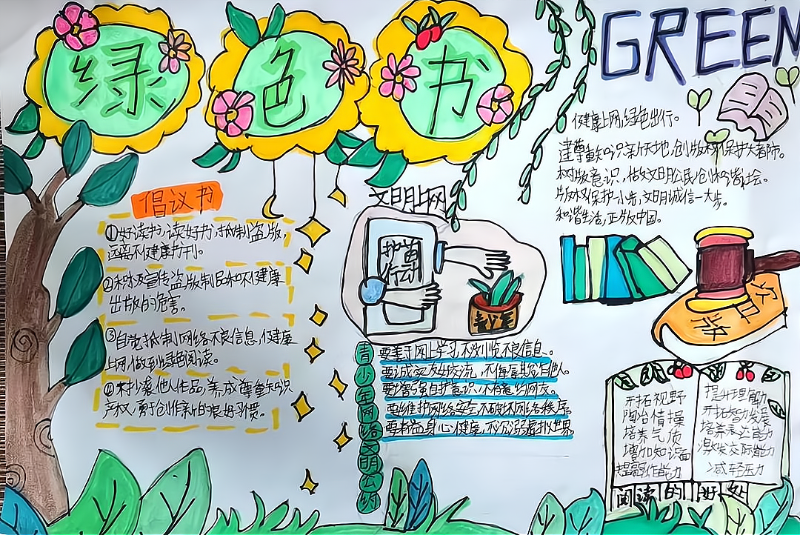 绿色书
GREEN
倡议书
①好读书,读好书,抵制盗版,
远离不健康书刊。
②积极宣传盗版制品和不健康
出版的危害。
③自觉抵制网络不良信息,健康
上网,做到绿色阅读。
④不抄袭他人作品,养成尊重知识
产权,勇于创作新的良好习惯。
文明上网
护苗
行动
青少年
青少年网络文明公约
要善于网上学习,不浏览不良信息。
要诚实友好交流,不侮辱欺诈他人。
要增强自护意识,不随意约会网友。
要维护网络安全,不破坏网络秩序。
要有益身心健康,不沉溺虚拟世界。
健康上网,绿色出行。
树版权意识,做文明公民,创和谐社会。
版权保护一小步,文明诚信一大步。
和谐生活,正版中国。
版
开拓视野
陶冶情操
培养气质
增加知识面
提高写作能力
提升理解能力
开拓智力发展
减轻压力
阅读的好处